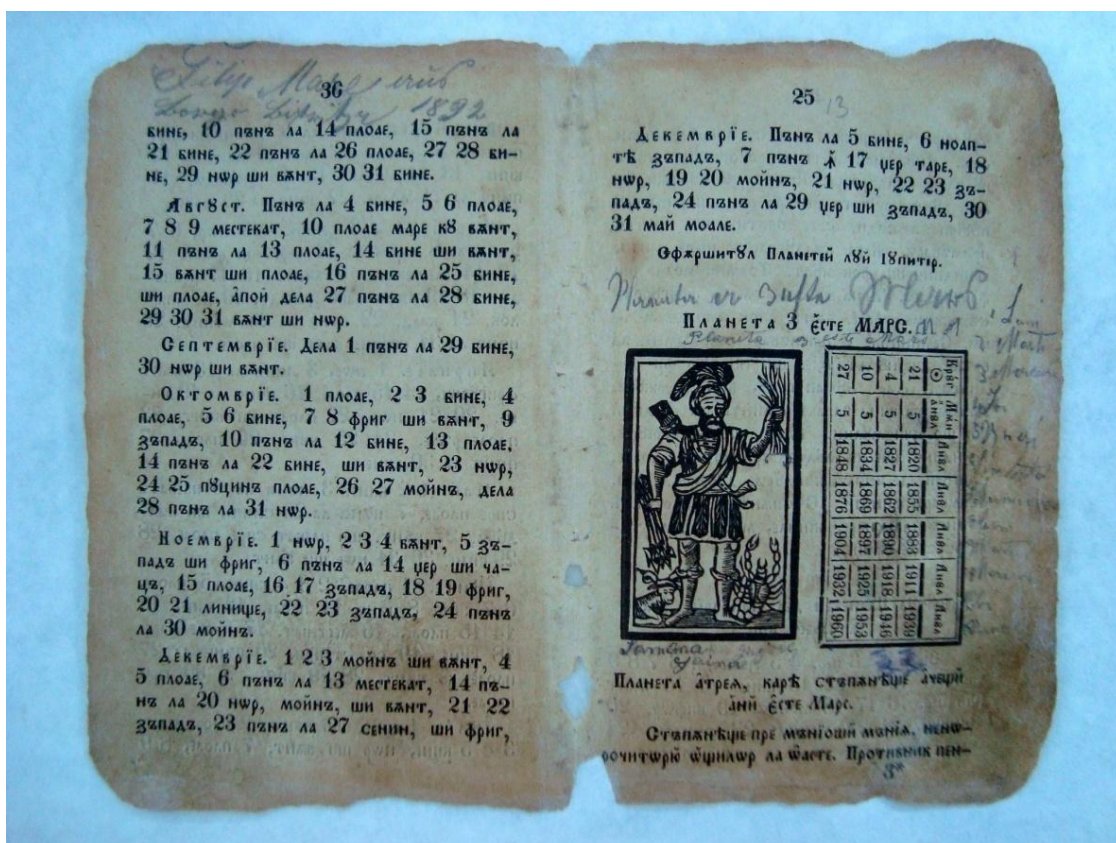 36
1892
бине, 10 пънъ ла 14 плоае, 15 пънъ ла
21 бине, 22 пънъ ла 26 плоае, 27 28 би-
не, 29 нѡр ши вѫнт, 30 31 бине.
Авгꙋст. Пънъ ла 4 бине, 5 6 плоае,
7 8 9 местекат, 10 плоае маре кꙋ вѫнт,
11 пънъ ла 13 плоае, 14 бине ши вѫнт,
15 вѫнт ши плоае, 16 пънъ ла 25 бине,
ши плоае, а҆пой дела 27 пънъ ла 28 бине,
29 30 31 вѫнт ши нѡр.
Септемврїе. Дела 1 пънъ ла 29 бине,
30 нѡр ши вѫнт.
Октомврїе. 1 плоае, 2 3 бине, 4
плоае, 5 6 бине, 7 8 фриг ши вѫнт, 9
зъпадъ, 10 пънъ ла 12 бине, 13 плоае,
14 пънъ ла 22 бине, ши вѫнт, 23 нѡр,
24 25 пꙋцинъ плоае, 26 27 мойнъ, дела
28 пънъ ла 31 нѡр.
Ноемврїе. 1 нѡр, 2 3 4 вѫнт, 5 зъ-
падъ ши фриг, 6 пънъ ла 14 џер ши ча-
цъ, 15 плоае, 16 17 зъпадъ, 18 19 фриг,
20 21 линище, 22 23 зъпадъ, 24 пънъ
ла 30 мойнъ.
Декемврїе. 1 2 3 мойнъ ши вѫнт, 4
5 плоае, 6 пънъ ла 13 местекат, 14 пъ-
нъ ла 20 нѡр, мойнъ, ши вѫнт, 21 22
зъпадъ, 23 пънъ ла 27 сенин, ши фриг,
25 13
Декемврїе. Пънъ ла 5 бине, 6 ноап-
тѣ зъпадъ, 7 пънъ ꙟ 17 џер таре, 18
нѡр, 19 20 мойнъ, 21 нѡр, 22 23 зъ-
падъ, 24 пънъ ла 29 џер ши зъпадъ, 30
31 май моале.
Сфѫршитꙋл Планетей лꙋй Іꙋпитер.
Планета 3 є҆сте МАРС.
Planeta 3 este Mars
21 5 1820 1855 1883 1911 1939
4 5 1827 1862 1890 1918 1946
10 5 1834 1869 1897 1925 1953
27 5 1848 1876 1904 1932 1960
Планета а҆треѧ, карѣ стъпѫнѣще а҆чещй
а҆нй є҆сте Марс.
Стъпѫнѣще пре мъніоший мъніѧ, ненѡ-
рочитѡрю ѡ҆щилѡр ла ѡ҆асте. Противник пен-
3*